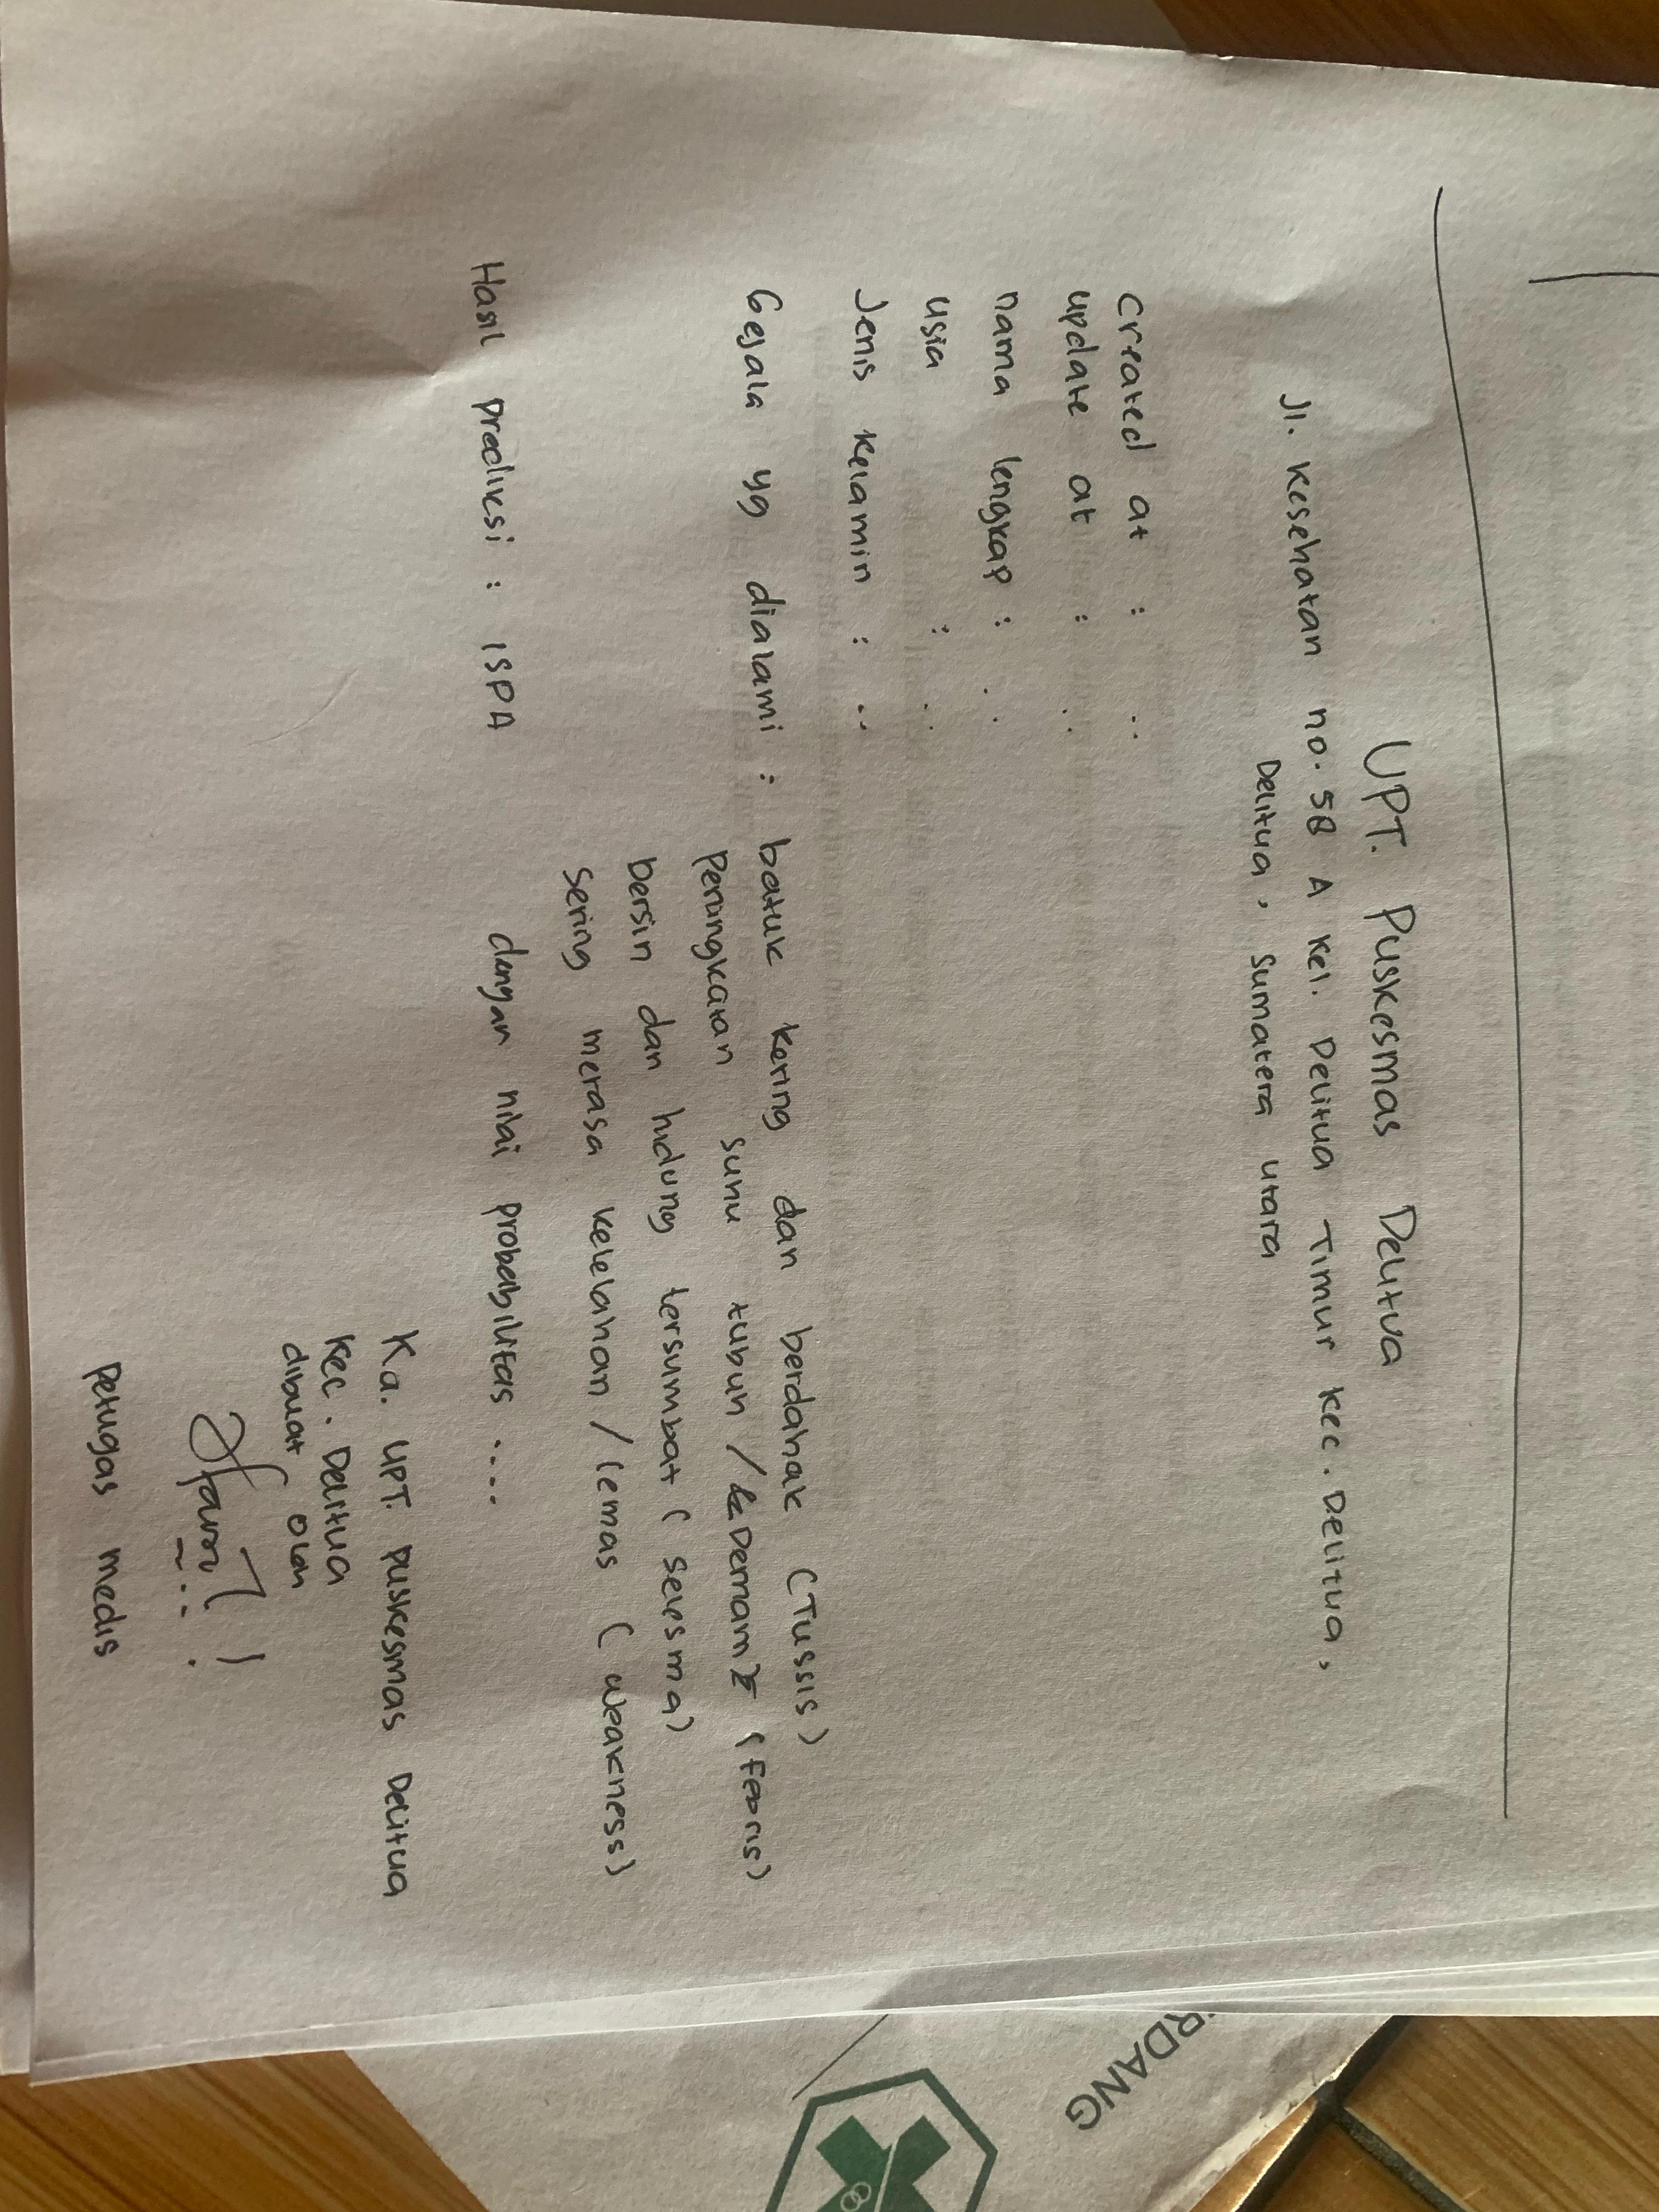 UPT. Puskesmas Delitua
Jl. Kesehatan no. 58 A Kel. Delitua Timur Kec. Delitua,
Delitua, Sumatera Utara
Created at : ..
update at : ..
nama lengkap : ..
usia : ..
Jenis Kelamin : ..
Gejala yg dialami : batuk kering dan berdahak (Tussis)
Perangkatan suhu tubuh / Demam (Febris)
bersin dan hidung tersumbat (Selesma)
Sering merasa kelelahan / lemas (weakness)
Hasil prediksi : ISPA dengan nilai probabilitas ....
Ka. UPT. Puskesmas Delitua
Kec. Delitua
dibuat oleh
Petugas medis
RDANG